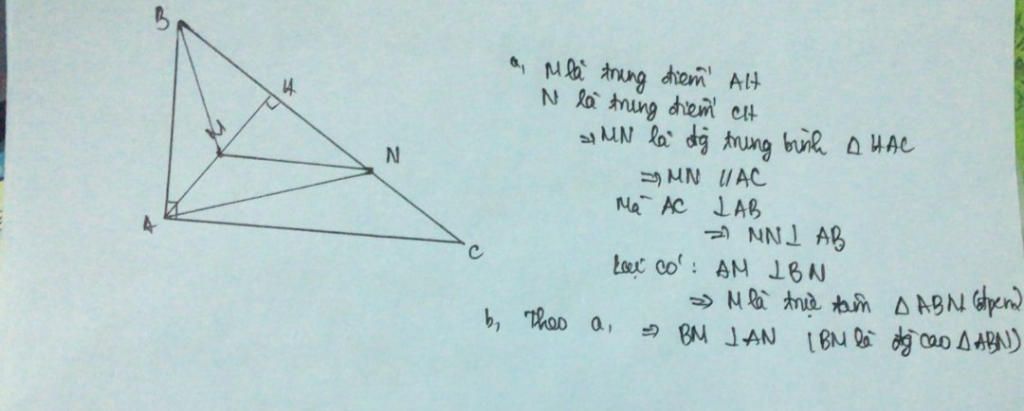 B
H
M
N
A
C
a, M là trung điểm AH
N là trung điểm CH
⇒ MN là đg trung bình △ HAC
⇒ MN // AC
Mà AC ⊥ AB
⇒ MN ⊥ AB
Lại có: AM ⊥ BN
⇒ M là trực tâm △ ABN (đpcm)
b, Theo a, ⇒ BM ⊥ AN (BM là đg cao △ ABN)